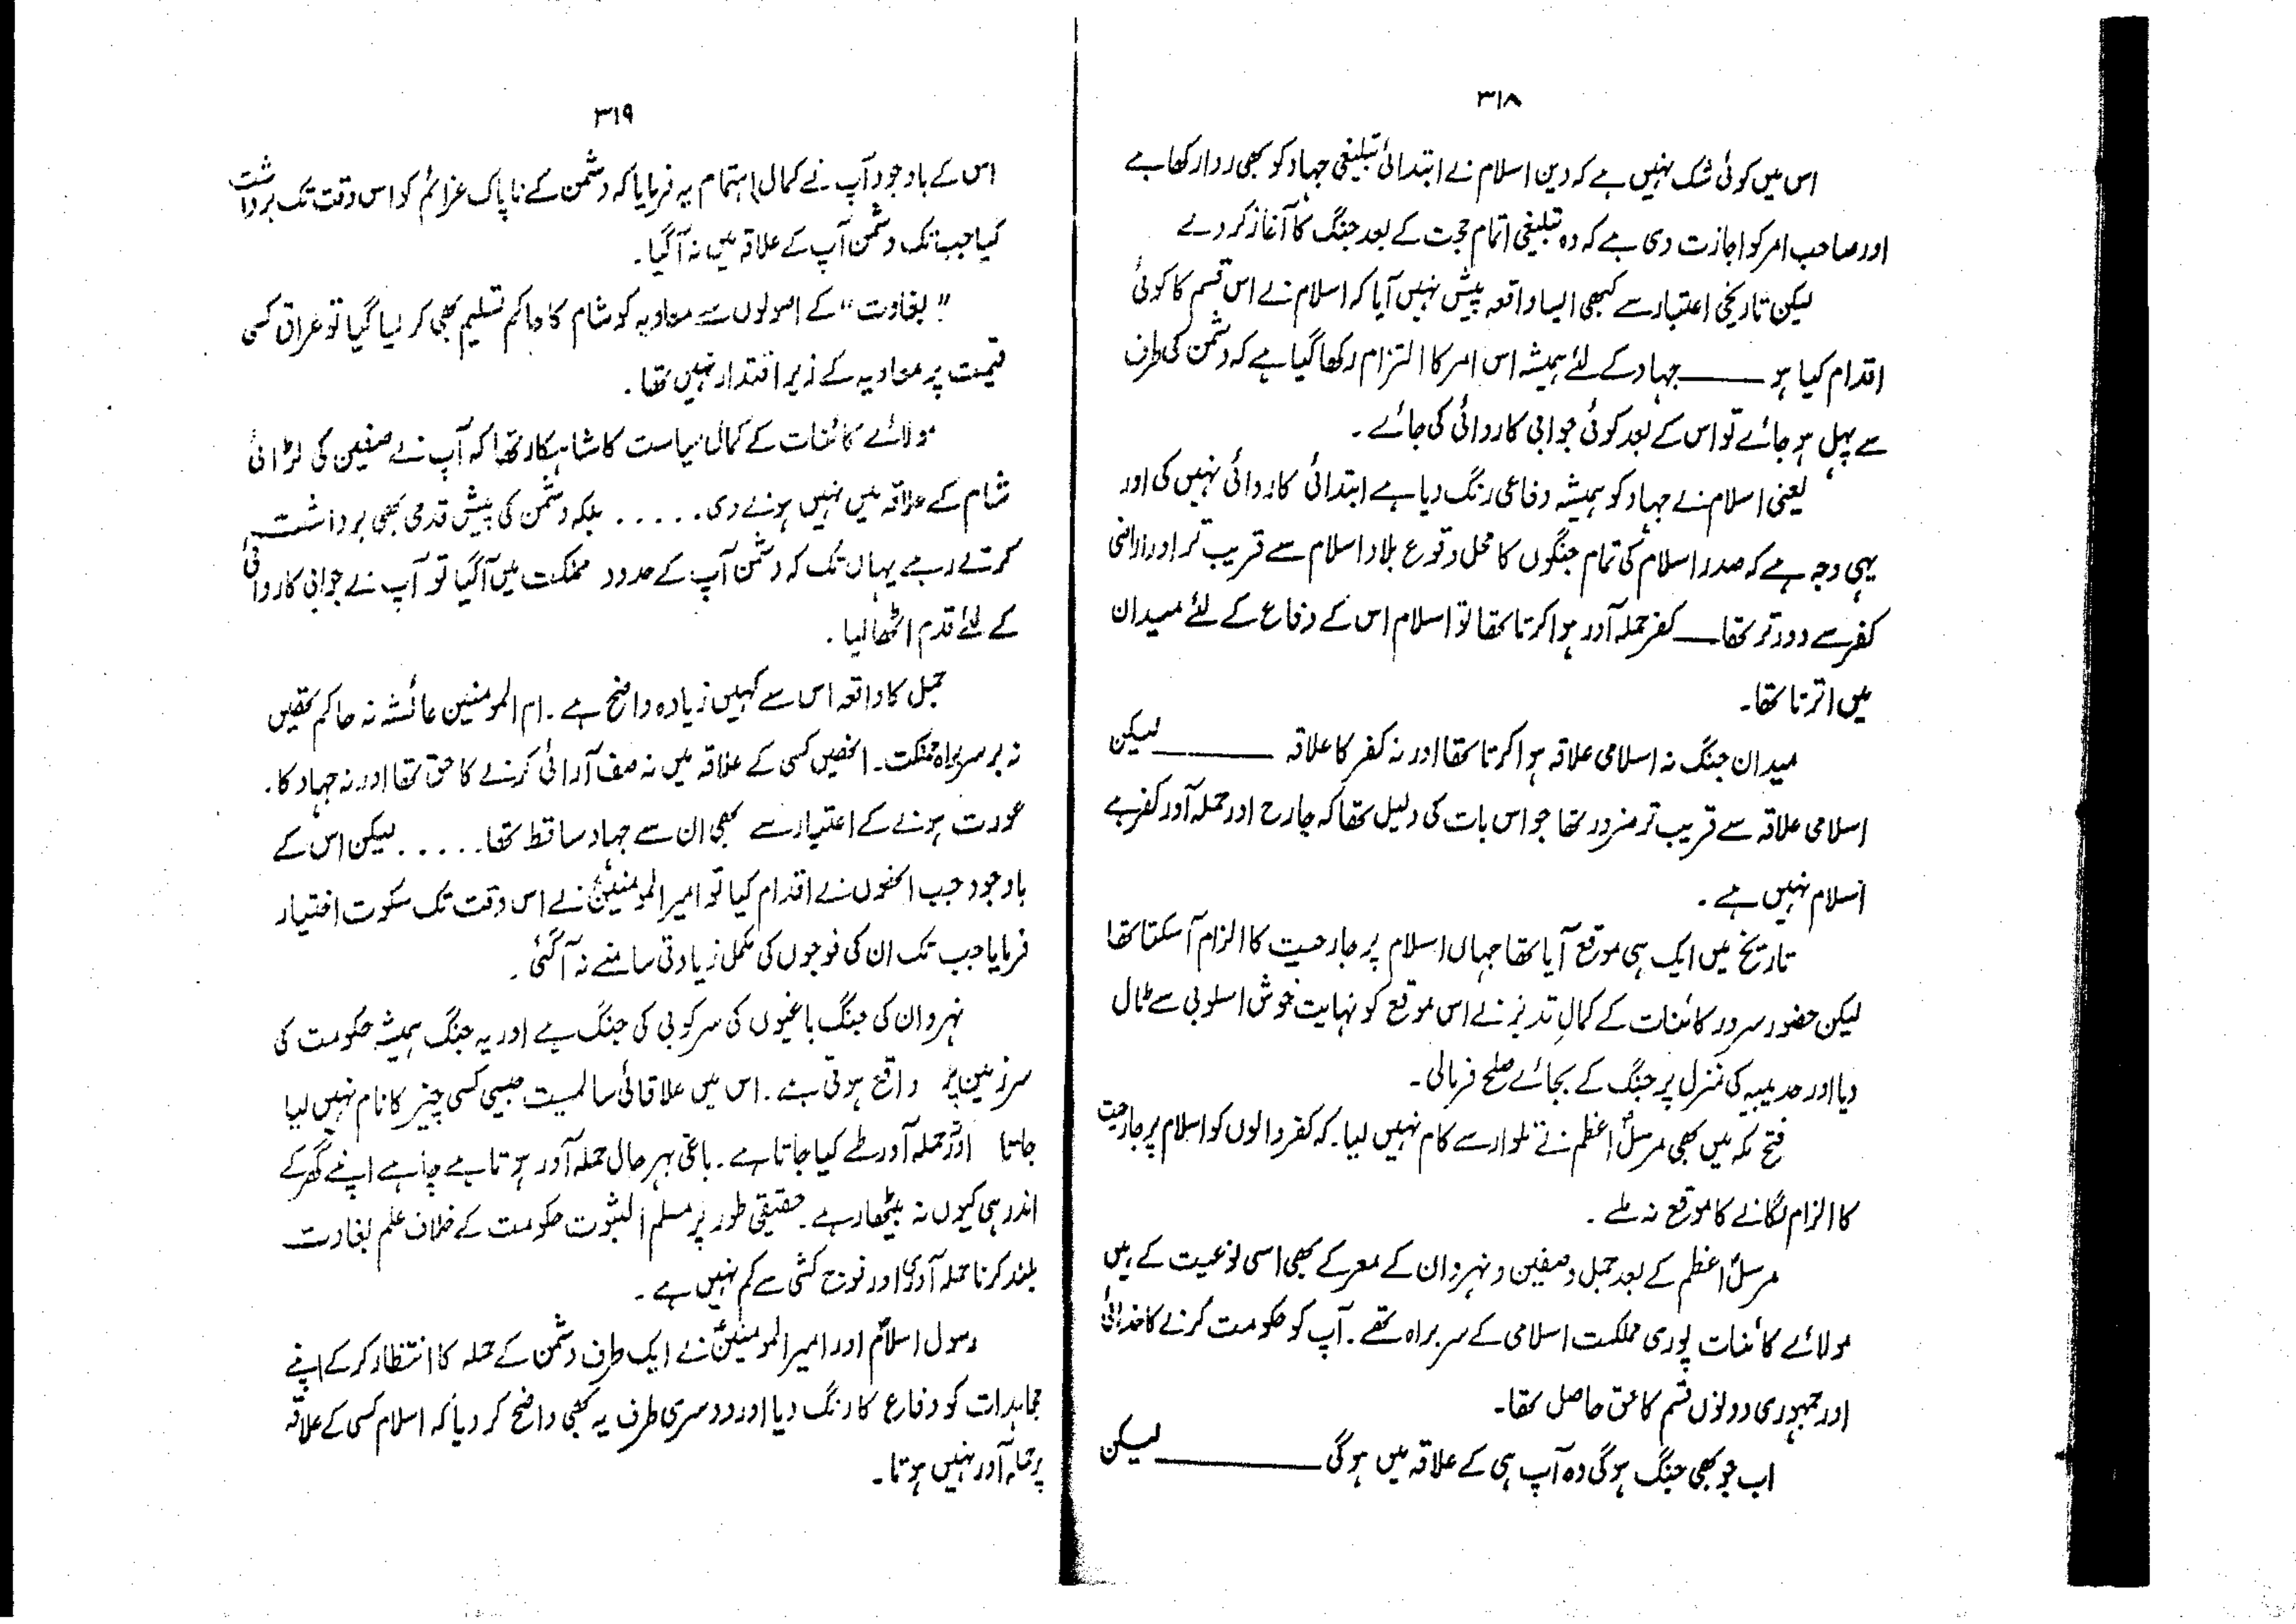 ۳۱۸
اس میں کوئی شک نہیں ہے کہ دین اسلام نے ابتدائی تبلیغی جہاد کو بھی روا رکھا ہے
اور صاحب امر کو اجازت دی ہے کہ وہ تبلیغی اتمام حجت کے بعد جنگ کا آغاز کر دے
لیکن تاریخی اعتبار سے کبھی ایسا واقعہ پیش نہیں آیا کہ اسلام نے اس قسم کا کوئی
اقدام کیا ہو ——— جہاد کے لئے ہمیشہ اس امر کا التزام رکھا گیا ہے کہ دشمن کی طرف
سے پہل ہو جائے تو اس کے بعد کوئی جوابی کاروائی کی جائے۔
یعنی اسلام نے جہاد کو ہمیشہ دفاعی رنگ دیا ہے ابتدائی کاروائی نہیں کی اور
یہی وجہ ہے کہ صدر اسلام کی تمام جنگوں کا محل وقوع بلاد اسلام سے قریب تر اور اراضی
کفر سے دور تر تھا — کفر حملہ آور ہوا کرتا تھا تو اسلام اس کے دفاع کے لئے میدان
میں اترتا تھا۔
میدان جنگ نہ اسلامی علاقہ ہوا کرتا تھا اور نہ کفر کا علاقہ ——— لیکن
اسلامی علاقہ سے قریب تر ضرور تھا جو اس بات کی دلیل تھا کہ جارح اور حملہ آور کفر ہے
اسلام نہیں ہے۔
تاریخ میں ایک ہی موقع آیا تھا جہاں اسلام پر جارحیت کا الزام آ سکتا تھا
لیکن حضور سرور کائنات کے کمالِ تدبر نے اس موقع کو نہایت خوش اسلوبی سے ٹال
دیا اور حدیبیہ کی منزل پر جنگ کے بجائے صلح فرمالی۔
فتح مکہ میں بھی مرسلؐ اعظم نے تلوار سے کام نہیں لیا۔ کہ کفر والوں کو اسلام پر جارحیت
کا الزام لگانے کا موقع نہ ملے۔
مرسلؐ اعظم کے بعد جمل و صفین و نہروان کے معرکے بھی اسی نوعیت کے ہیں
مولائے کائنات پوری مملکت اسلامی کے سربراہ تھے۔ آپ کو حکومت کرنے کا خدائی
اور جمہوری دونوں قسم کا حق حاصل تھا۔
اب جو بھی جنگ ہوگی وہ آپ ہی کے علاقہ میں ہوگی ——— لیکن
۳۱۹
اس کے باوجود آپ نے کمال اہتمام یہ فرمایا کہ دشمن کے ناپاک عزائم کو اس وقت تک برداشت
کیا جب تک دشمن آپ کے علاقہ میں نہ آ گیا۔
"بغاوت" کے اصولوں سے معاویہ کو شام کا حاکم تسلیم بھی کر لیا گیا تو عراق کسی
قیمت پر معاویہ کے زیر اقتدار نہیں تھا۔
مولائے کائنات کے کمال سیاست کا شاہکار تھا کہ آپ نے صفین کی لڑائی
شام کے علاقہ میں نہیں ہونے دی..... بلکہ دشمن کی پیش قدمی بھی برداشت
کرتے رہے یہاں تک کہ دشمن آپ کے حدود مملکت میں آگیا تو آپ نے جوابی کاروائی
کے لئے قدم اٹھا لیا۔
جمل کا واقعہ اس سے کہیں زیادہ واضح ہے۔ ام المومنین عائشہ نہ حاکم تھیں
نہ برسربراہ مملکت۔ انھیں کسی کے علاقہ میں نہ صف آرائی کرنے کا حق تھا اور نہ جہاد کا۔
عورت ہونے کے اعتبار سے بھی ان سے جہاد ساقط تھا..... لیکن اس کے
باوجود جب انھوں نے اقدام کیا تو امیرالمومنینؑ نے اس وقت تک سکوت اختیار
فرمایا جب تک ان کی فوجوں کی مکمل زیادتی سامنے نہ آ گئی۔
نہروان کی جنگ باغیوں کی سرکوبی کی جنگ ہے اور یہ جنگ ہمیشہ حکومت کی
سرزمین پر واقع ہوتی ہے۔ اس میں علاقائی سالمیت جیسی کسی چیز کا نام نہیں لیا
جاتا اور حملہ آور طے کیا جاتا ہے۔ باغی بہرحال حملہ آور ہوتا ہے چاہے اپنے گھر کے
اندر ہی کیوں نہ بیٹھا رہے۔ حقیقی طور پر مسلم الثبوت حکومت کے خلاف علم بغاوت
بلند کرنا حملہ آوری اور فوج کشی سے کم نہیں ہے۔
رسول اسلامؐ اور امیرالمومنینؑ نے ایک طرف دشمن کے حملہ کا انتظار کر کے اپنے
مجاہدات کو دفاع کا رنگ دیا اور دوسری طرف یہ بھی واضح کر دیا کہ اسلام کسی کے علاقہ
پر حملہ آور نہیں ہوتا۔